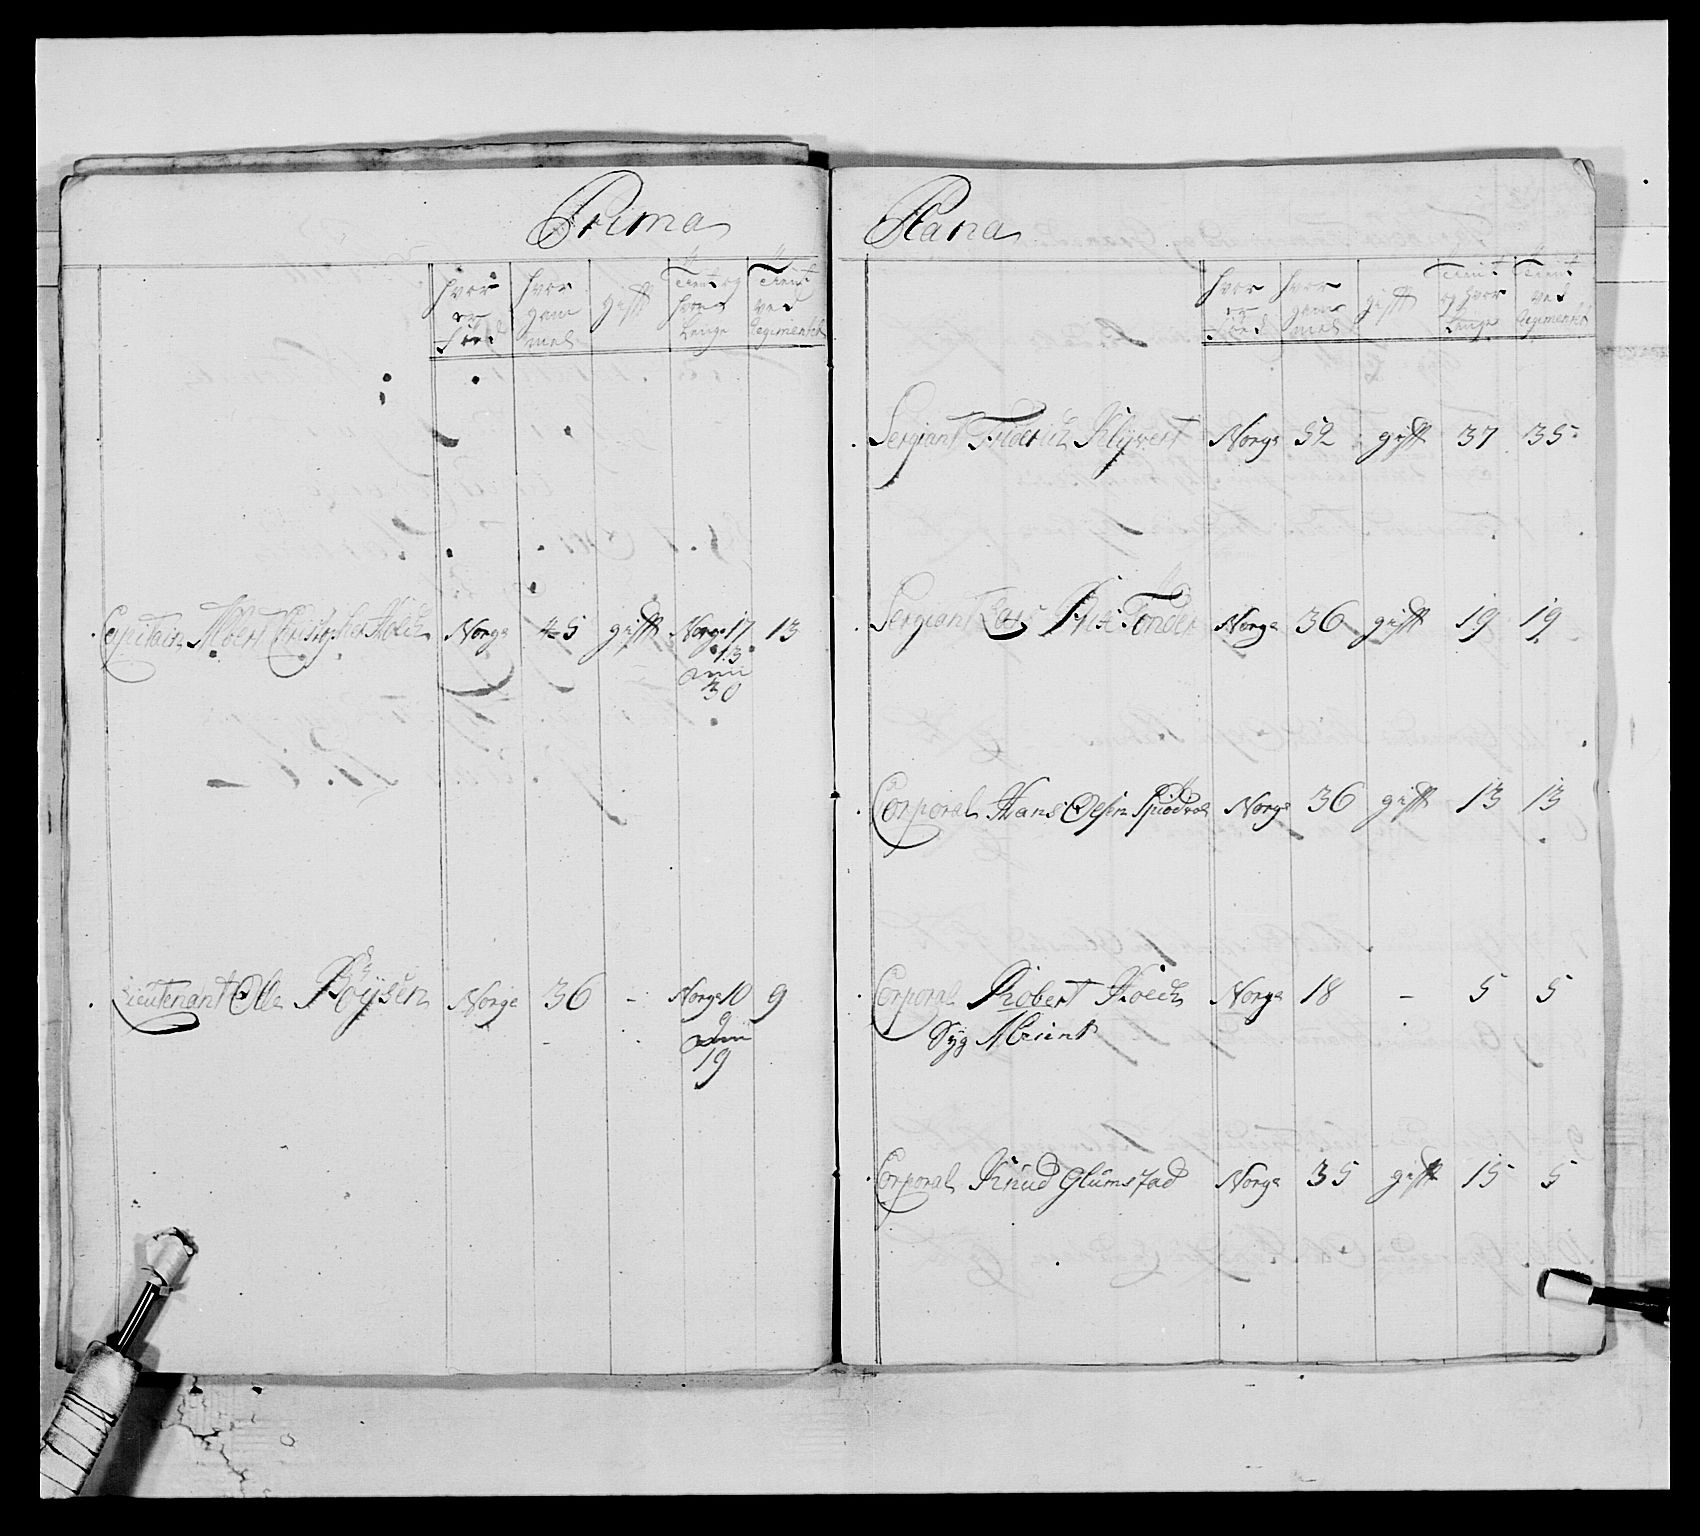 Prima
hvor er föed
hvor gam mel
gifft
Tient og hvor Lenge
Tient ved Regimentet
Capitain Albert Christopher Koch Norge 45 gifft Norge 17 13
13
30
Lieutenant Olle Böysen Norge 36 - Norge 10 9
9
19
Plana
hvor er föed
hvor gam mel
gifft
Tient og hvor Lenge
Tient ved Regimentet
Sergiant Friderich Klÿvert Norge 52 gifft 37 35
Sergiant Lars Tönder Norge 36 gifft 19 19
Corporal Hans Olsen Norge 36 gifft 13 13
Corporal Robert Koch Norge 18 - 5 5
Syg
Corporal Knud Glumstad Norge 35 gifft 15 5